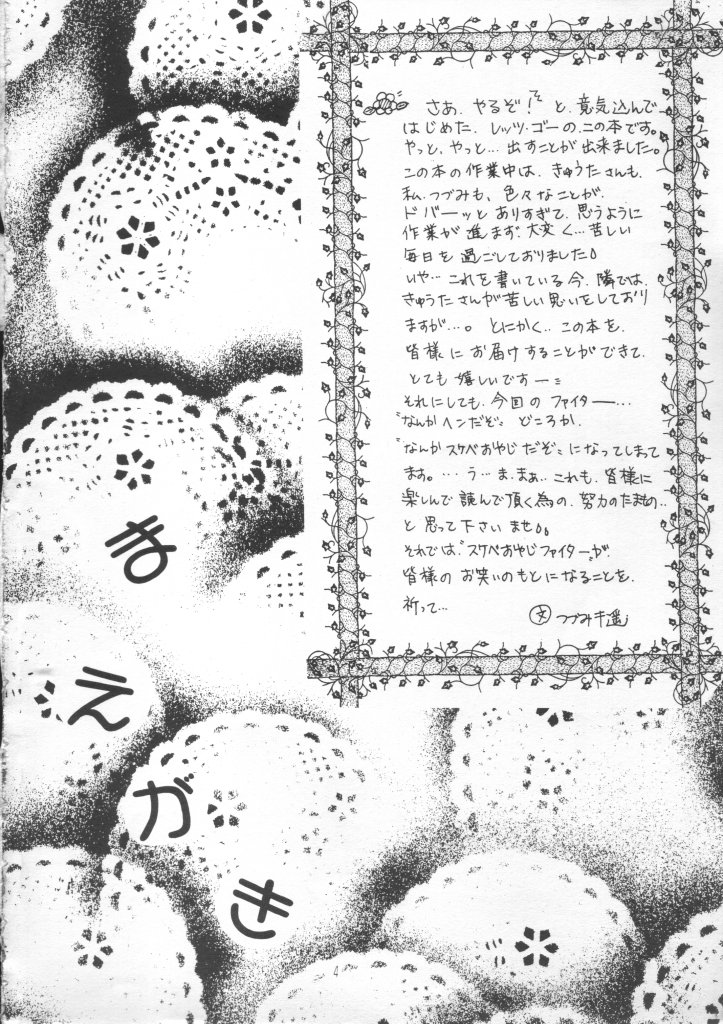 さあ、やるぞ!と、意気込んで
はじめた、レッツ・ゴーの、この本です。
やっと、やっと…出すことが出来ました。
この本の作業中は、きゅうたさんも、
私、つづみも、色々なことが、
ドバーッとありすぎて、思うように
作業が進まず、大変く…苦しい
毎日を過ごしておりました。
いや…これを書いている今、隣では、
きゅうたさんが苦しい思いをしており
ますが…。とにかく、この本を、
皆様にお届けすることができて、
とても嬉しいですーー
それにしても、今回のファイター…
"なんかヘンだぞ" どころか、
"なんかスケベおやじだぞ"になってしまって
ます。…う…ま、まぁ、これも、皆様に
楽しんで読んで頂く為の、努力のたまもの‥
と思って下さいませ。
それでは、"スケベおやじファイター"が、
皆様のお笑いのもとになることを、
祈って…
文 つづみ遥
まえがき